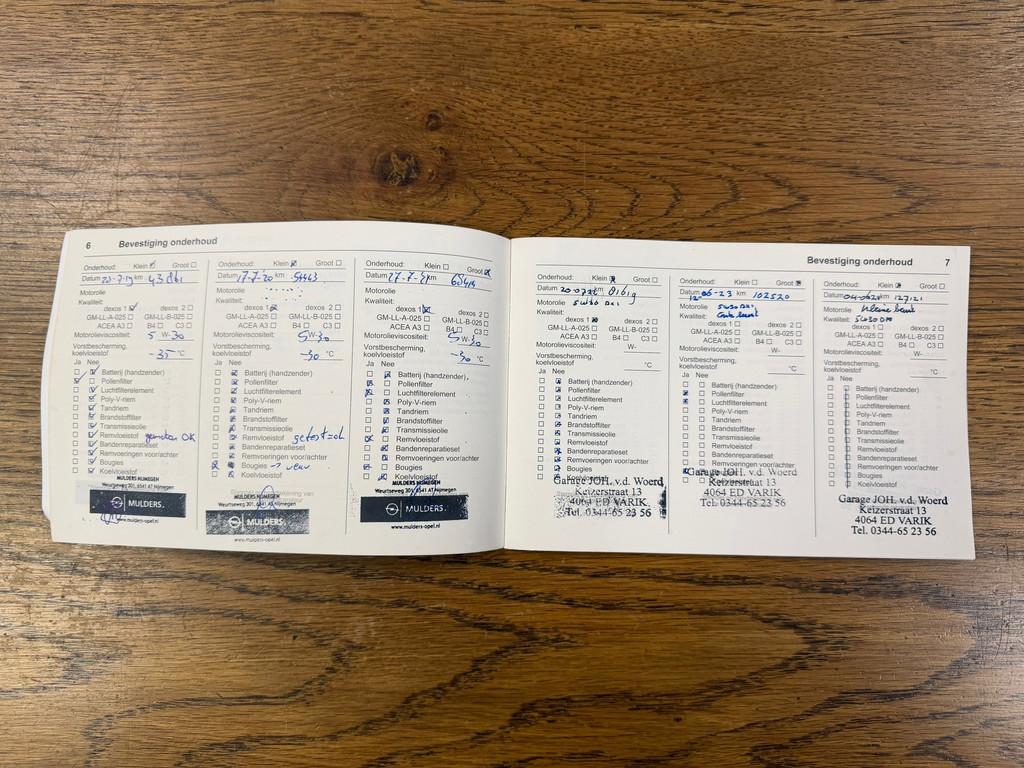 6 Bevestiging onderhoud
Onderhoud: Klein Groot
Datum 23-7-19 km 43
Motorolie
Kwaliteit:
dexos 1 dexos 2
GM-LL-A-025 GM-LL-B-025
ACEA A3 B4 C3
Motorolieviscositeit: 5 W-30
Vorstbescherming,
koelvloeistof -35 °C
Ja Nee
Batterij (handzender)
Pollenfilter
Luchtfilterelement
Poly-V-riem
Tandriem
Brandstoffilter
Transmissieolie
Remvloeistof OK
Bandenreparatieset
Remvoeringen voor/achter
Bougies
Koelvloeistof
MULDERS NIJMEGEN
Weurtseweg 301, 6541 AT Nijmegen
MULDERS.
www.mulders-opel.nl
Onderhoud: Klein Groot
Datum 17-7-'20 km 54443
Motorolie
Kwaliteit:
dexos 1 dexos 2
GM-LL-A-025 GM-LL-B-025
ACEA A3 B4 C3
Motorolieviscositeit: 5 W-30
Vorstbescherming,
koelvloeistof -30 °C
Ja Nee
Batterij (handzender)
Pollenfilter
Luchtfilterelement
Poly-V-riem
Tandriem
Brandstoffilter
Transmissieolie
Remvloeistof getest=ok
Bandenreparatieset
Remvoeringen voor/achter
Bougies
Koelvloeistof
MULDERS NIJMEGEN
Weurtseweg 301, 6541 AT Nijmegen
MULDERS.
www.mulders-opel.nl
Onderhoud: Klein Groot
Datum km 60414
Motorolie
Kwaliteit:
dexos 1 dexos 2
GM-LL-A-025 GM-LL-B-025
ACEA A3 B4 C3
Motorolieviscositeit: 5 W-30
Vorstbescherming,
koelvloeistof -30 °C
Ja Nee
Batterij (handzender)
Pollenfilter
Luchtfilterelement
Poly-V-riem
Tandriem
Brandstoffilter
Transmissieolie
Remvloeistof
Bandenreparatieset
Remvoeringen voor/achter
Bougies
Koelvloeistof
MULDERS NIJMEGEN
Weurtseweg 301, 6541 AT Nijmegen
MULDERS.
www.mulders-opel.nl
Bevestiging onderhoud 7
Onderhoud: Klein Groot
Datum km
Motorolie 5w30
Kwaliteit:
dexos 1 dexos 2
GM-LL-A-025 GM-LL-B-025
ACEA A3 B4 C3
Motorolieviscositeit: W-
Vorstbescherming,
koelvloeistof °C
Ja Nee
Batterij (handzender)
Pollenfilter
Luchtfilterelement
Poly-V-riem
Tandriem
Brandstoffilter
Transmissieolie
Remvloeistof
Bandenreparatieset
Remvoeringen voor/achter
Bougies
Koelvloeistof
Garage JOH. v.d. Woerd
Keizerstraat 13
4064 ED VARIK
Tel. 0344-65 23 56
Onderhoud: Klein Groot
Datum 12 06-23 km 102520
Motorolie 5w30
Kwaliteit:
dexos 1 dexos 2
GM-LL-A-025 GM-LL-B-025
ACEA A3 B4 C3
Motorolieviscositeit: W-
Vorstbescherming,
koelvloeistof °C
Ja Nee
Batterij (handzender)
Pollenfilter
Luchtfilterelement
Poly-V-riem
Tandriem
Brandstoffilter
Transmissieolie
Remvloeistof
Bandenreparatieset
Remvoeringen voor/achter
Bougies
Garage JOH. v.d. Woerd
Keizerstraat 13
4064 ED VARIK
Tel. 0344-65 23 56
Onderhoud: Klein Groot
Datum km
Motorolie Kleine beurt
Kwaliteit: 5w30
dexos 1 dexos 2
GM-LL-A-025 GM-LL-B-025
ACEA A3 B4 C3
Motorolieviscositeit: W-
Vorstbescherming,
koelvloeistof °C
Ja Nee
Batterij (handzender)
Pollenfilter
Luchtfilterelement
Poly-V-riem
Tandriem
Brandstoffilter
Transmissieolie
Remvloeistof
Bandenreparatieset
Remvoeringen voor/achter
Bougies
Koelvloeistof
Garage JOH. v.d. Woerd
Keizerstraat 13
4064 ED VARIK
Tel. 0344-65 23 56